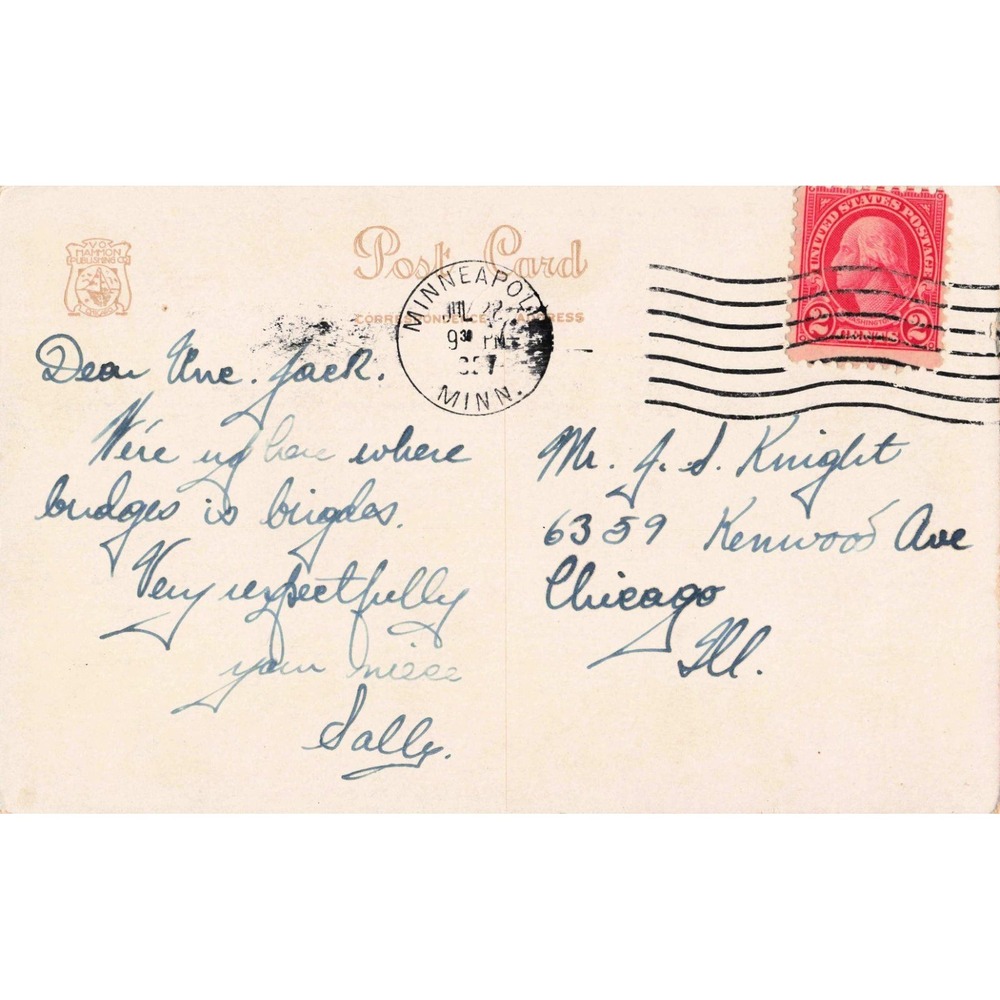 V O
HAMMON
PUBLISHING CO
CHICAGO
Post Card
CORRESPONDENCE ADDRESS
MINNEAPOLIS
JUL 22
9 30 PM
MINN.
UNITED STATES POSTAGE
WASHINGTON
2 CENTS 2
Dear Unc. Jack.
We're up here where
bridges is brigdes.
Very respectfully
your niece
Sally.
Mr. J. S. Knight
6359 Kenwood Ave
Chicago
Ill.